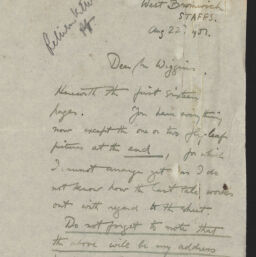 West Bromwich
STAFFS.
Aug 22nd
Dear Mr Wiggins,
Herewith the first sixteen
pages. You have everything
now except the one or two fly-leaf
pictures at the end, for which
I must arrange yet as I do
not know how the last tale works
out with regard to the sheet.
Do not forget to note that
the above will be my address